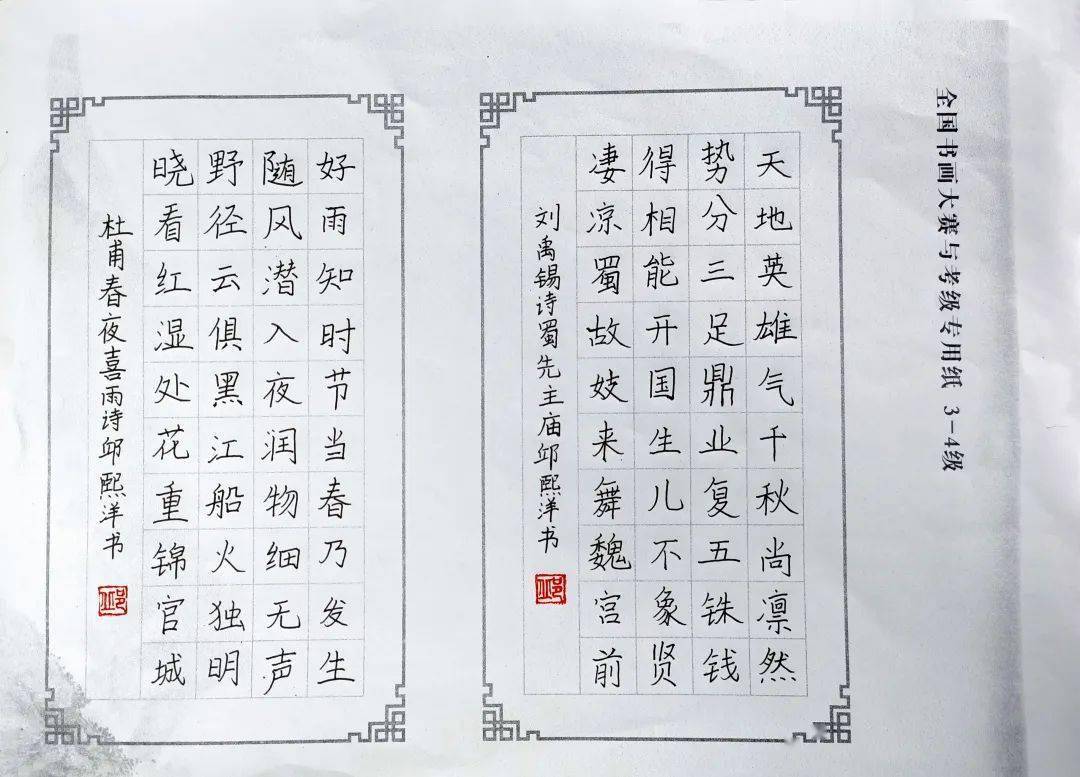 全国书画大赛与考级专用纸 3-4级
天地英雄气千秋尚凛然
势分三足鼎业复五铢钱
得相能开国生儿不象贤
凄凉蜀故妓来舞魏宫前
刘禹锡诗蜀先主庙邱熙洋书
邱
好雨知时节当春乃发生
随风潜入夜润物细无声
野径云俱黑江船火独明
晓看红湿处花重锦官城
杜甫春夜喜雨诗邱熙洋书
邱